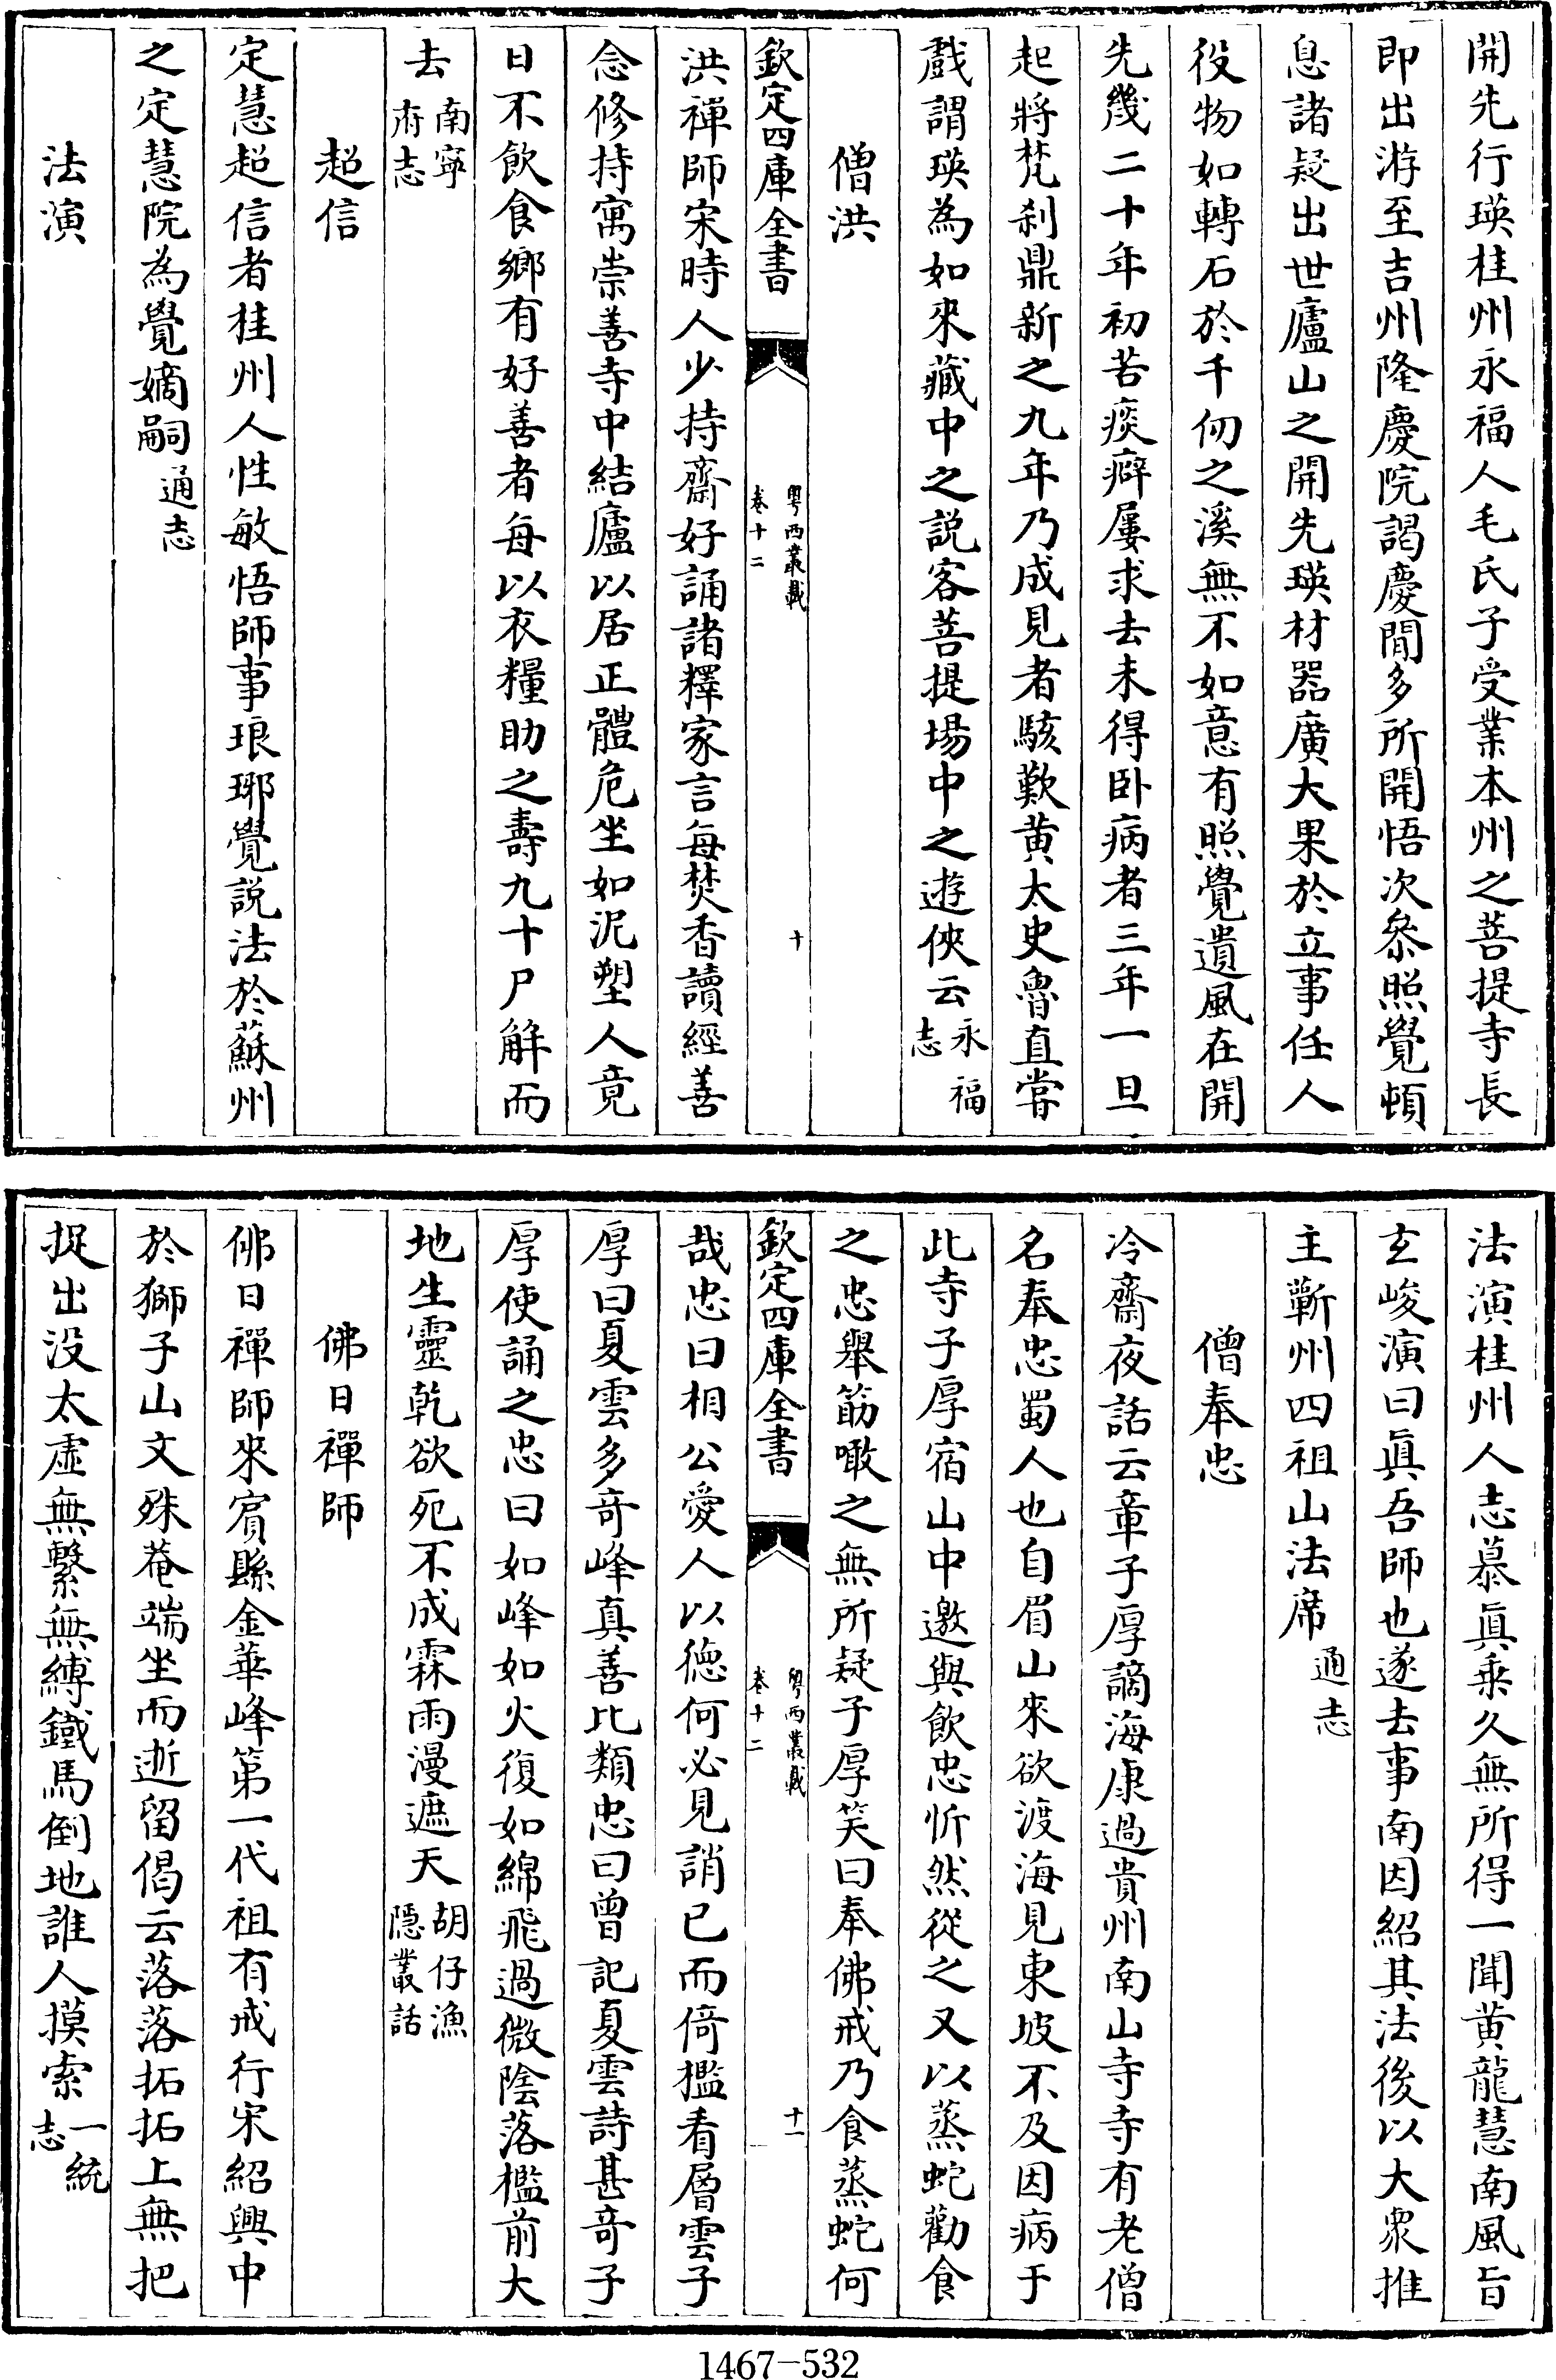 開先行瑛桂州永福人毛氏子受業本州之菩提寺長
即出游至吉州隆慶院謁慶閒多所開悟次叅照覺頓
息諸疑出世廬山之開先瑛材器廣大果於立事任人
役物如轉石於千仞之溪無不如意有照覺遺風在開
先幾二十年初苦痰癖屢求去未得卧病者三年一旦
起將梵刹鼎新之九年乃成見者駭歎黄太史魯直嘗
戲謂瑛為如來藏中之説客菩提場中之遊俠云永福志
僧洪
欽定四庫全書
粤西叢載
卷十二
十
洪禪師宋時人少持齋好誦諸釋家言每焚香讀經善
念修持寓崇善寺中結廬以居正體危坐如泥塑人竟
日不飲食鄉有好善者每以衣糧助之壽九十尸解而
去南寧府志
超信
定慧超信者桂州人性敏悟師事琅琊覺説法於蘇州
之定慧院為覺嫡嗣通志
法演
法演桂州人志慕眞乗久無所得一聞黄龍慧南風旨
玄峻演曰眞吾師也遂去事南因紹其法後以大衆推
主蘄州四祖山法席通志
僧奉忠
冷齋夜話云章子厚謫海康過貴州南山寺寺有老僧
名奉忠蜀人也自眉山來欲渡海見東坡不及因病于
此寺子厚宿山中邀與飲忠忻然從之又以蒸蛇勸食
之忠舉筯噉之無所疑子厚笑曰奉佛戒乃食蒸蛇何
欽定四庫全書
粤西叢載
卷十二
十一
哉忠曰相公愛人以德何必見誚已而倚檻看層雲子
厚曰夏雲多奇峰真善比類忠曰曾記夏雲詩甚奇子
厚使誦之忠曰如峰如火復如綿飛過微陰落檻前大
地生靈乾欲死不成霖雨漫遮天胡仔漁隠叢話
佛日禪師
佛日禪師來賓縣金華峰第一代祖有戒行宋紹興中
於獅子山文殊菴端坐而逝留偈云落落拓拓上無把
捉出没太虚無繫無縛鐵馬倒地誰人摸索一統志
1467-532